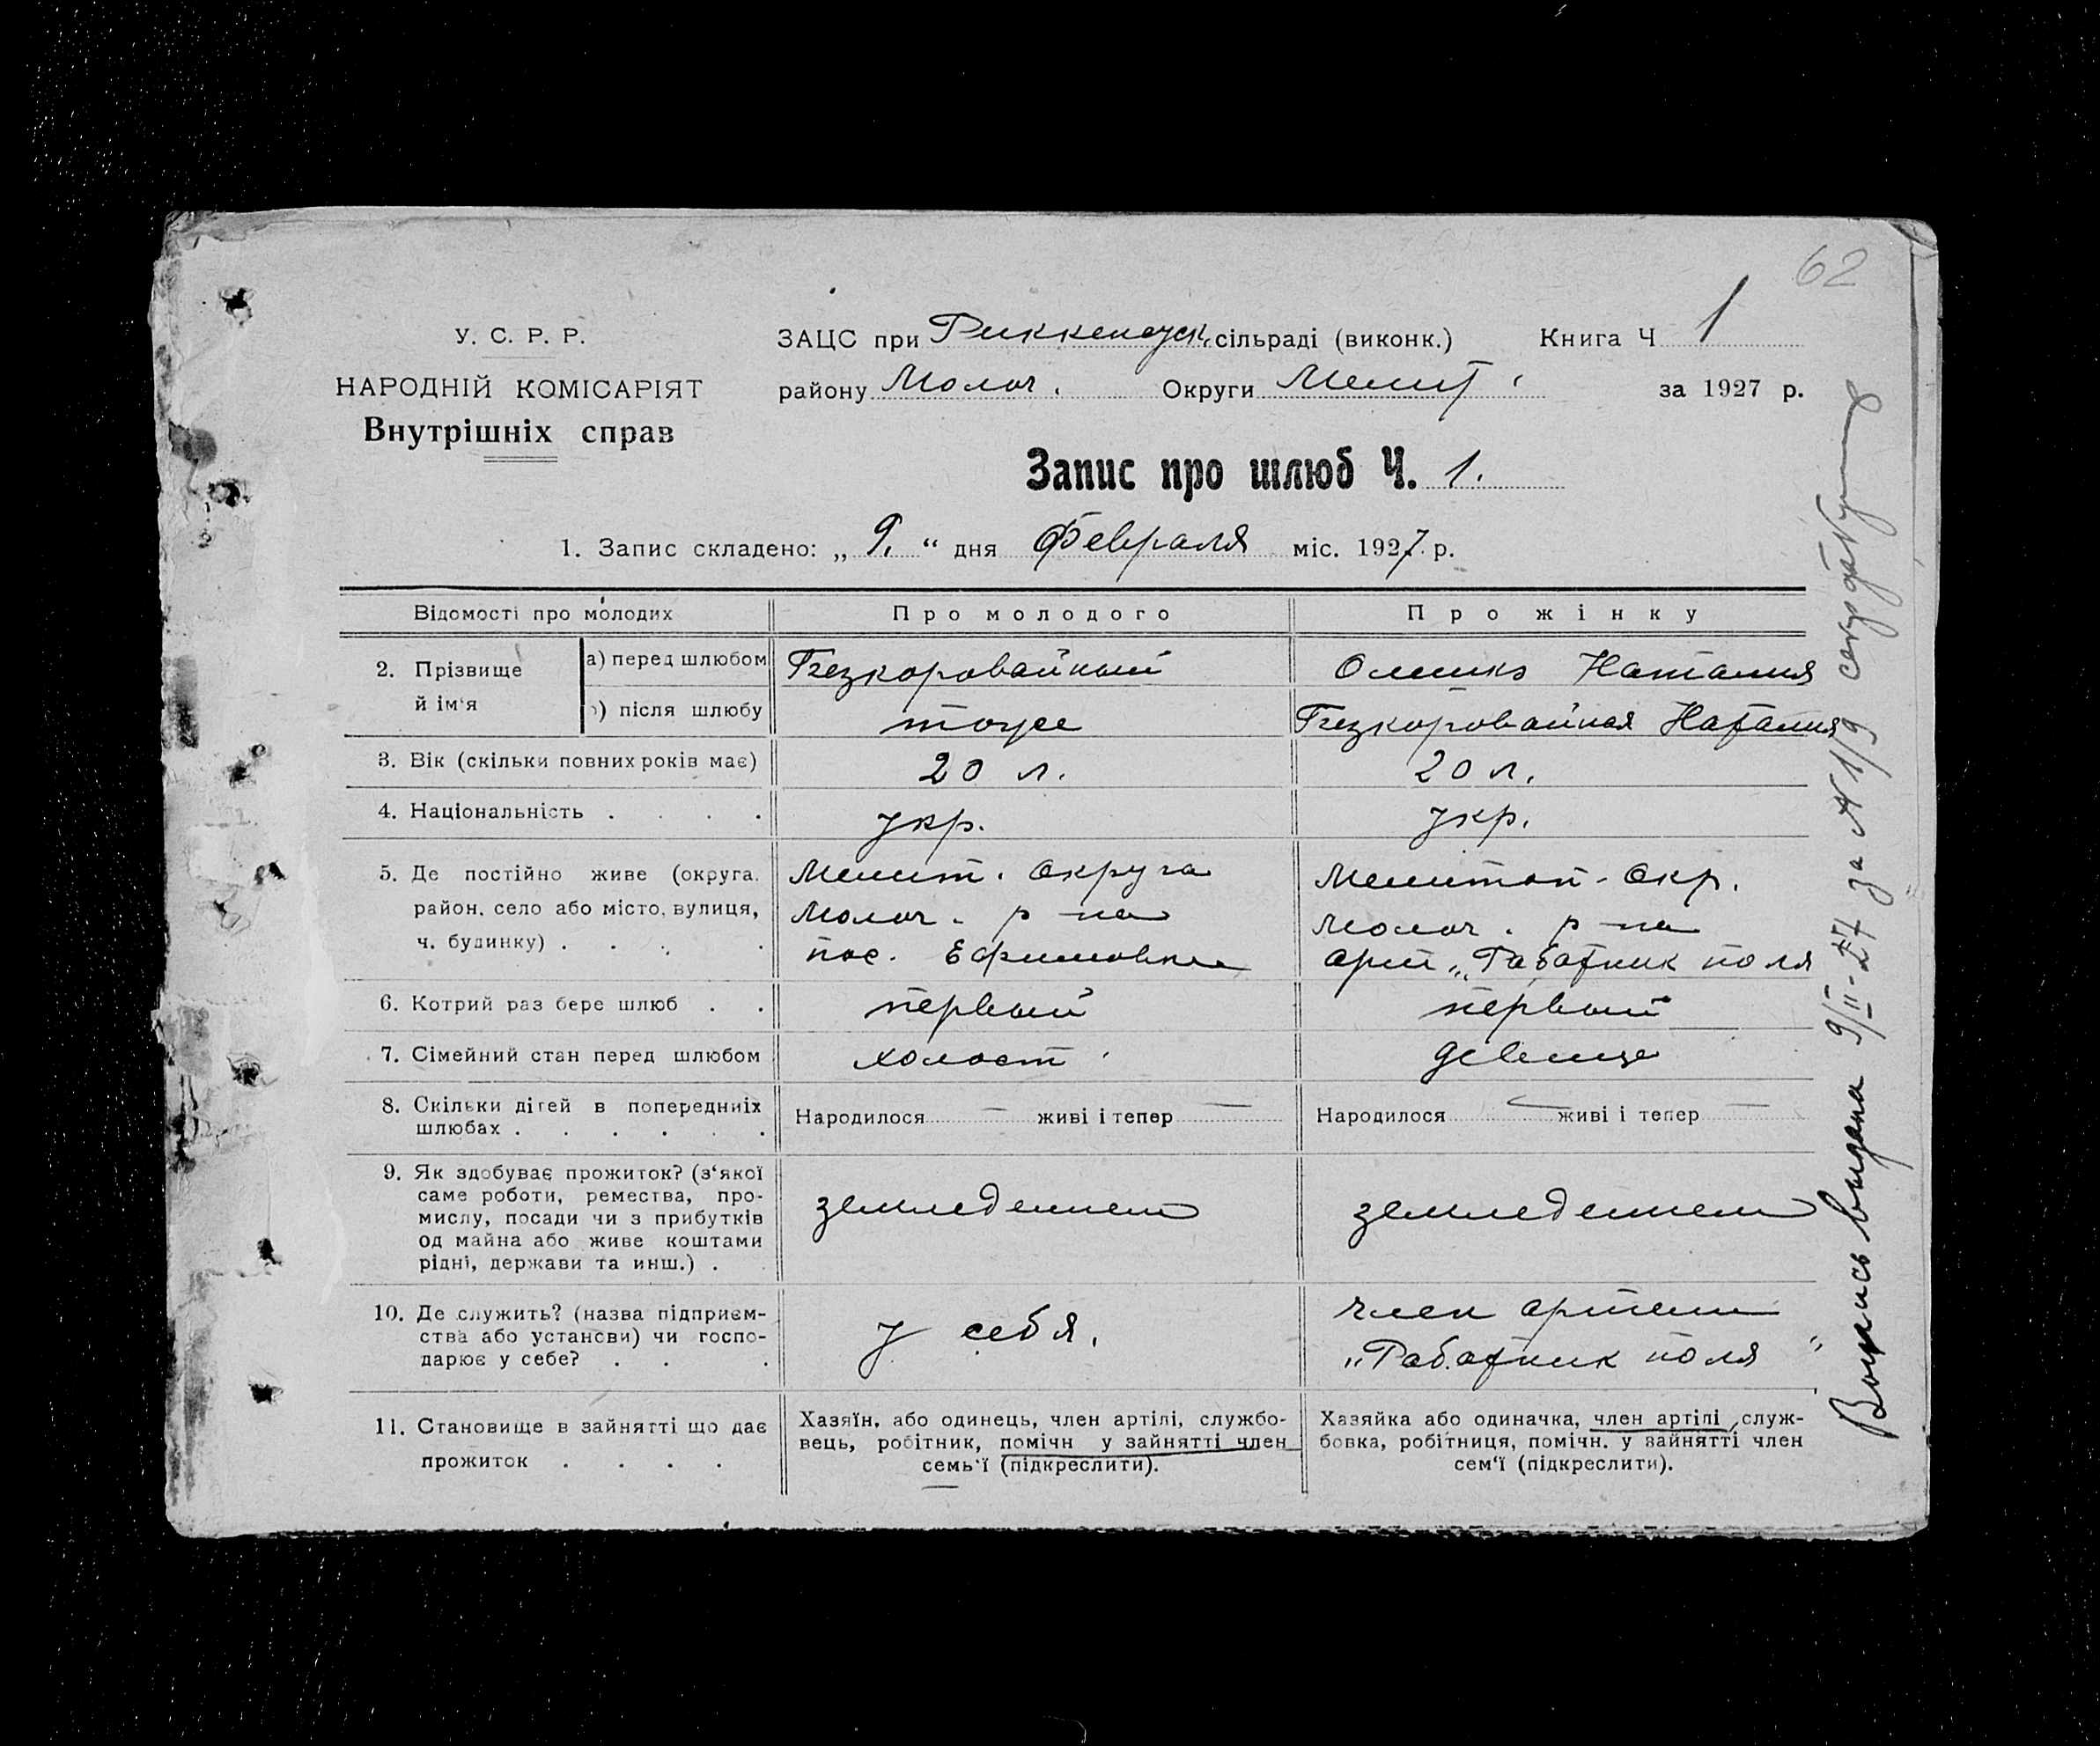 62
У. С. Р. Р.
НАРОДНІЙ КОМІСАРІЯТ
Внутрішніх справ
ЗАЦС при Риккенауск. сільраді (виконк.) Книга Ч 1
району Молоч. Округи Мелит. за 1927 р.
Запис про шлюб Ч. 1.
1. Запис складено: „ 9. “ дня Февраля міс. 1927 р.
Відомості про молодих Про молодого Про жінку
2. Прізвище й ім‘я
а) перед шлюбом Безкоровайный Наталия
) після шлюбу тоже Безкоровайная Наталия
3. Вік (скільки повних років має) 20 л. 20 л.
4. Національність . . . . укр. укр.
5. Де постійно живе (округа, район, село або місто, вулиця, ч. будинку) . . . .
Мелит. округа
Молоч. р-на
пос. Ефимовка
Мелитоп. окр.
Молоч. р-на
арт. „Работник поля
6. Котрий раз бере шлюб . . первый первый
7. Сімейний стан перед шлюбом холост девица
8. Скільки дітей в попередниіх шлюбах . . . . . .
Народилося — живі і тепер —
Народилося — живі і тепер —
9. Як здобуває прожиток? (з‘якої саме роботи, ремества, промислу, посади чи з прибутків од майна або живе коштами рідні, держави та инш.) .
земледелием
земледелием
10. Де служить? (назва підприємства або установи) чи господарює у себе? . . .
у себя.
член артели
„Работник поля“
11. Становище в зайнятті що дає прожиток . . . .
Хазяїн, або одинець, член артілі, службо-
вець, робітник, помічн у зайнятті член
семь‘ї (підкреслити).
Хазяйка або одиначка, член артілі, служ-
бовка, робітниця, помічн. у зайнятті член
сем‘ї (підкреслити).
Выпись выдана 9/II-27 за № 1/9